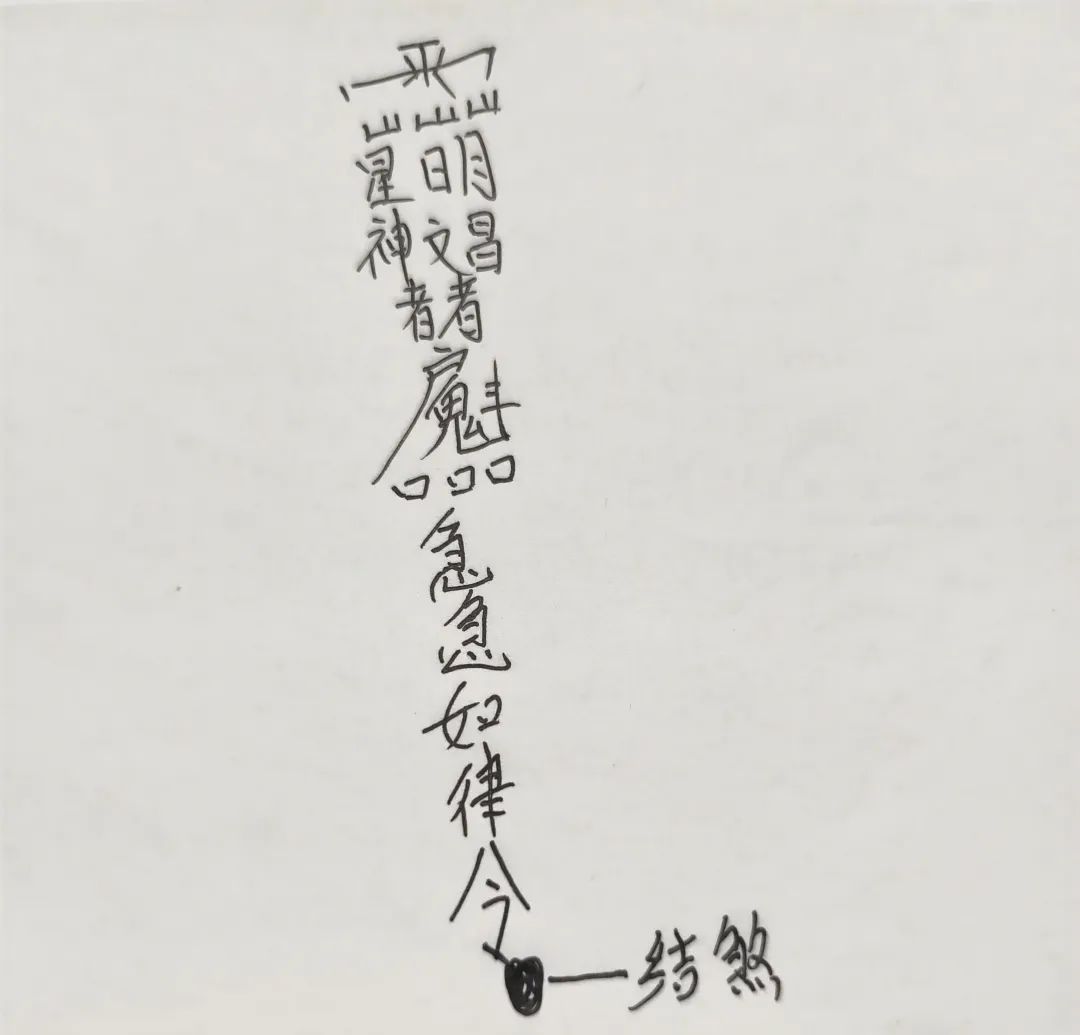 山山山
星日月
神文昌
者者
魁
口口口
急
急
如
律
令
结煞